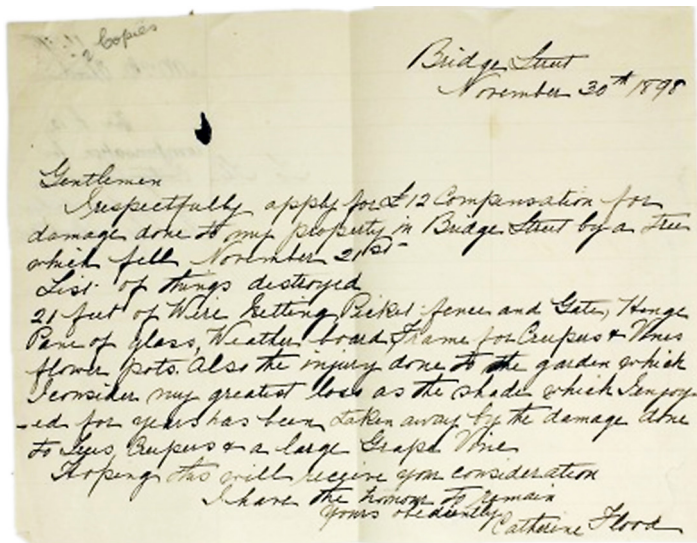 2 Copies
Bridge Street
November 30th 1898
Gentlemen
I respectfully apply for £12 Compensation for
damage done to my property in Bridge Street by a Tree
which fell November 21st
List of things destroyed
21 feet of Wire Netting Picket fence and Gate, Henge
Pane of glass, Weather board, Frame for Creepers & Vines
flower pots. Also the injury done to the garden which
I consider my greatest loss as the shade which I enjoy
-ed for years has been taken away by the damage done
to Creepers & a large Grape Vine
Hoping this will receive your consideration
I have the honour to remain
yours obediently
Catherine Flood